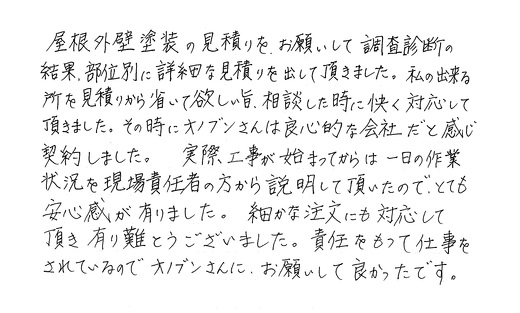 屋根外壁塗装の見積りを、お願いして調査診断の
結果、部位別に詳細な見積りを出して頂きました。私の出来る
所を見積りから省いて欲しい旨、相談した時に快く対応して
頂きました。その時にオノブンさんは良心的な会社だと感じ
契約しました。 実際、工事が始まってからは一日の作業
状況を現場責任者の方から説明して頂いたので、とても
安心感が有りました。 細かな注文にも対応して
頂き有り難とうございました。責任をもって仕事を
されているのでオノブンさんに、お願いして良かったです。